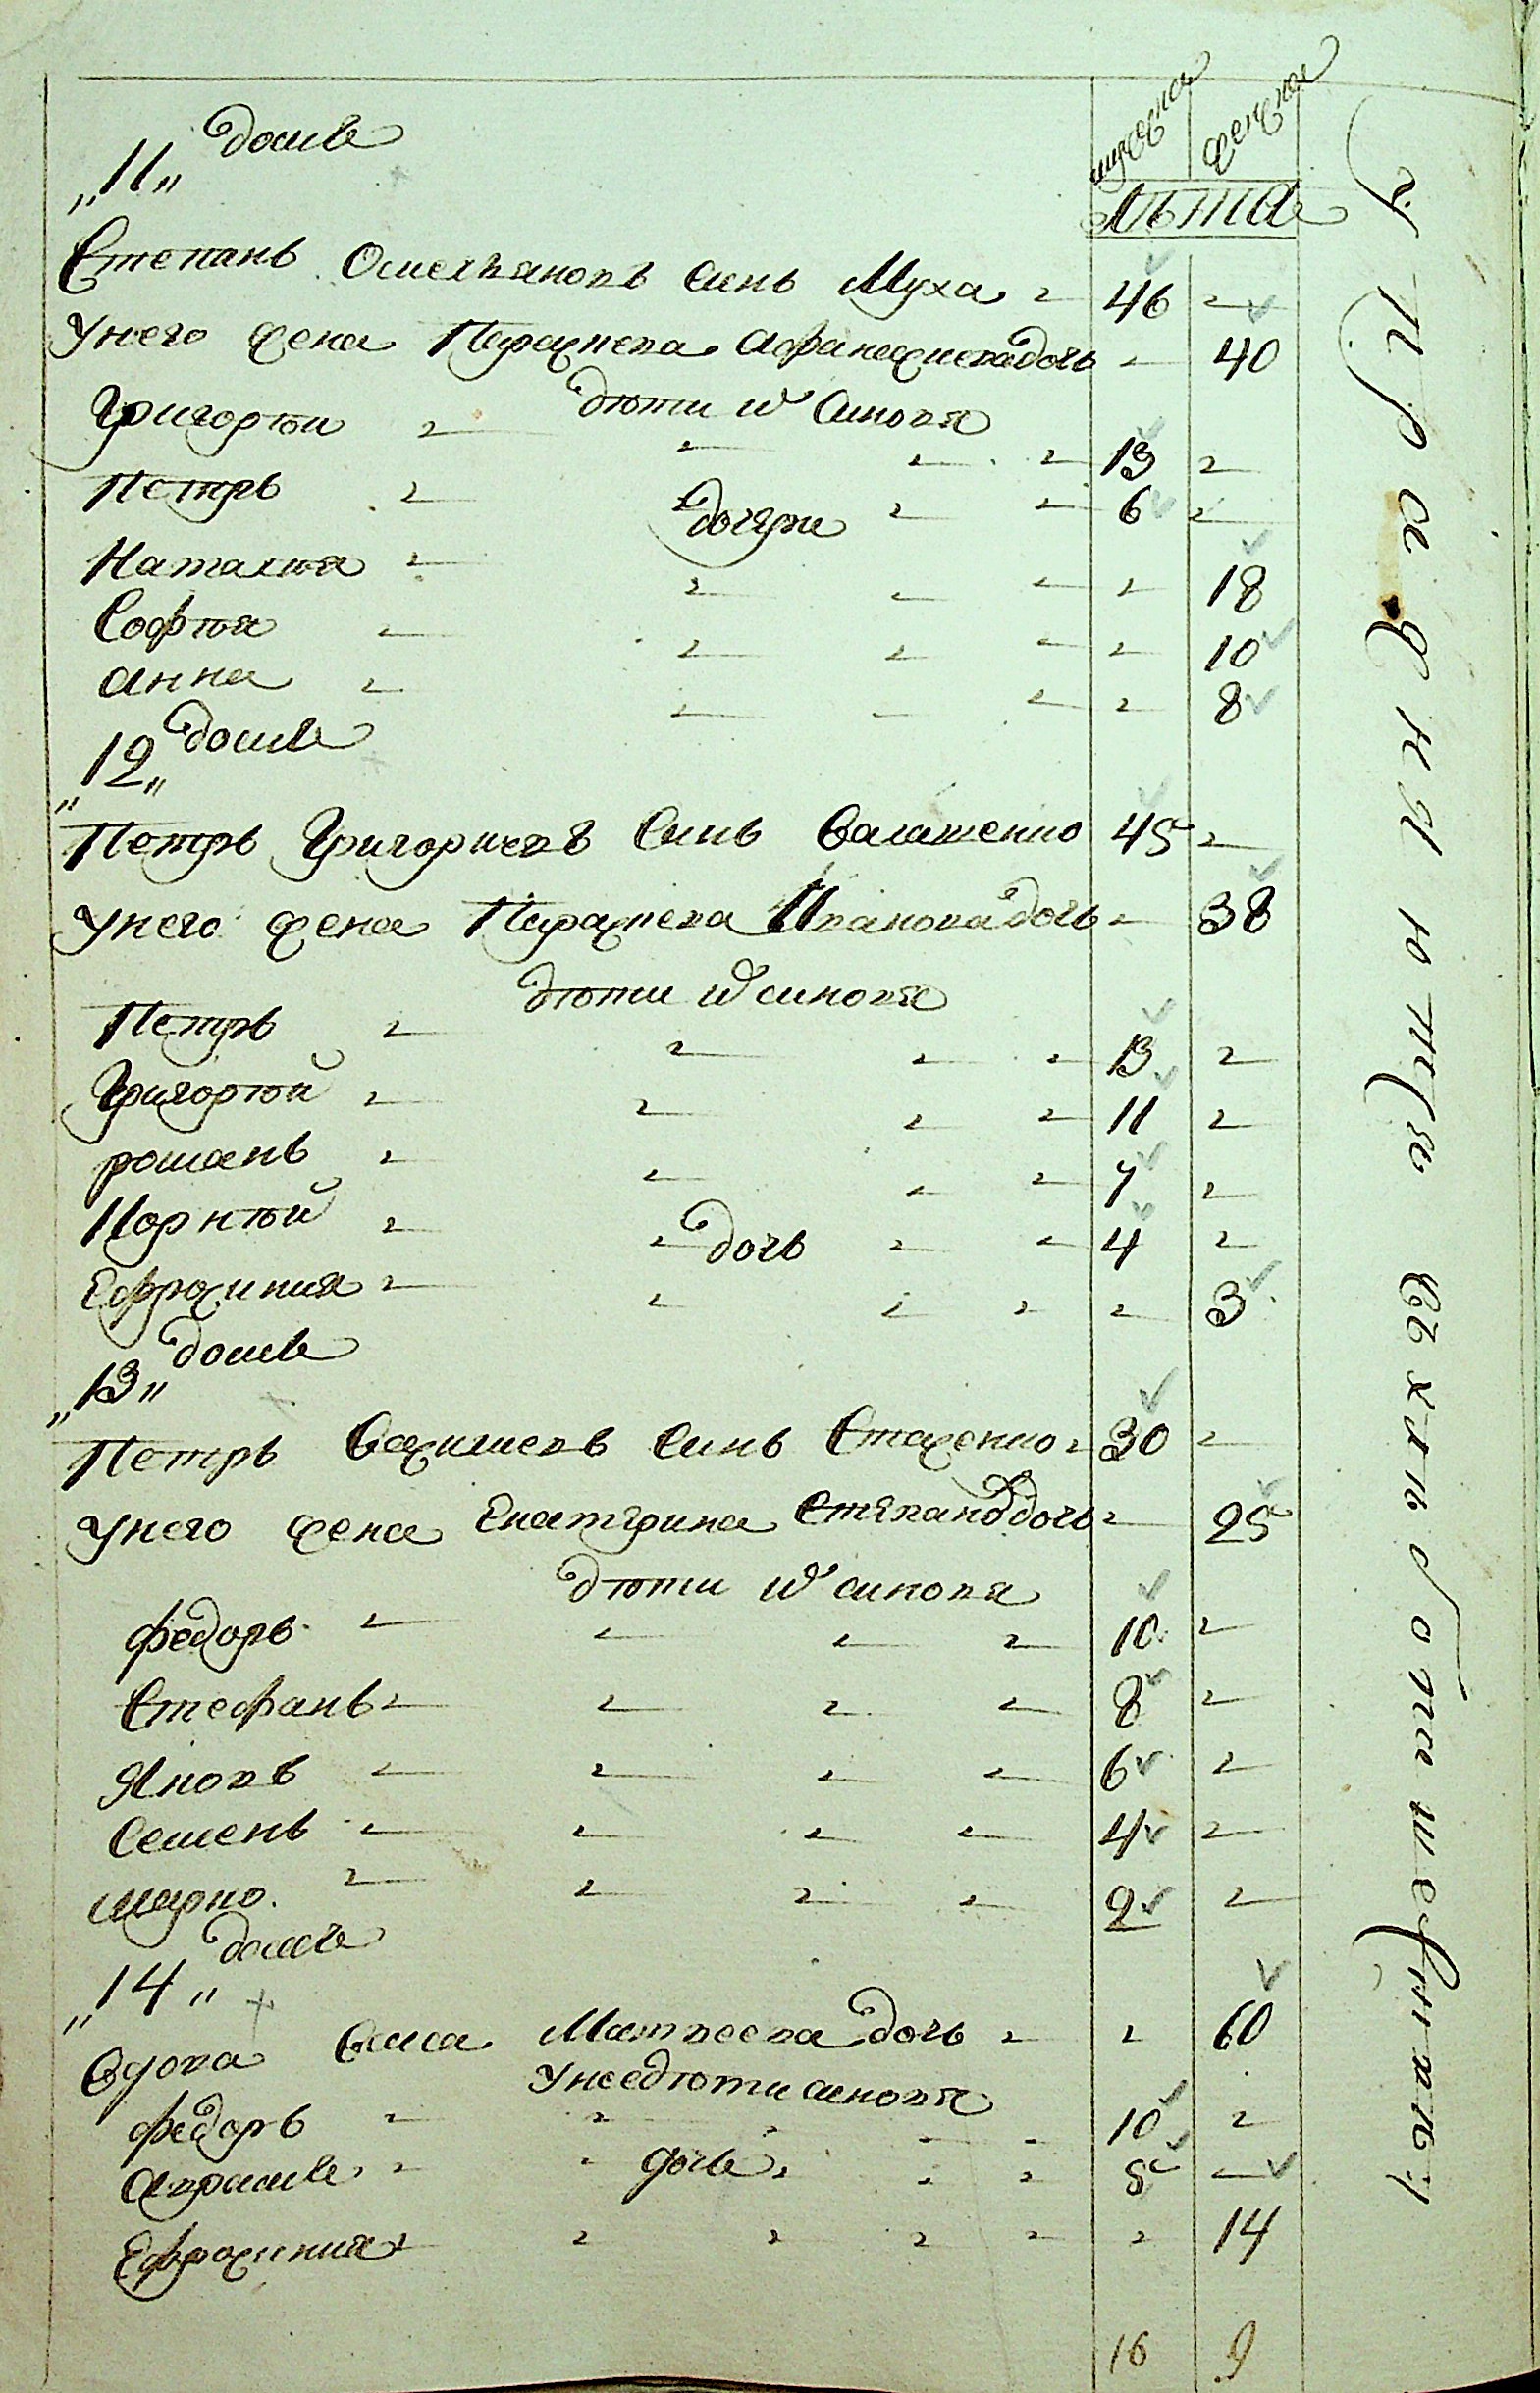 мужеска женска
лѣта
„11„ домъ
Степанъ Омельяновъ Синъ Муха 46
Унего жена Параскева Афанасиева дочь 40
дѣти и Синовя
Григорѣи 13
Петръ 6
дочери
Наталѣя 18
Софѣя 10
анна 8
„12„ домъ
Петръ Григориевъ Синъ 45
Унего жена Параскева Иванова дочь 38
дѣти и синовя
Петръ 13
Григорѣй 11
романъ 7
Корнѣй 4
дочь
Ефросиния 3
„13„ домъ
Петръ Василиевъ Синъ Стасенко 30
Унего жена Екатерина Степано дочь 25
дѣти и синовя
федоръ 10
Стефанъ 8
Яковъ 6
Семенъ 4
марко 2
„14„ домъ
Вдова Матвеева дочь 60
Унее дѣти синовя
федоръ 10
аврамъ 5
дочь
Ефросиния 14
16 9